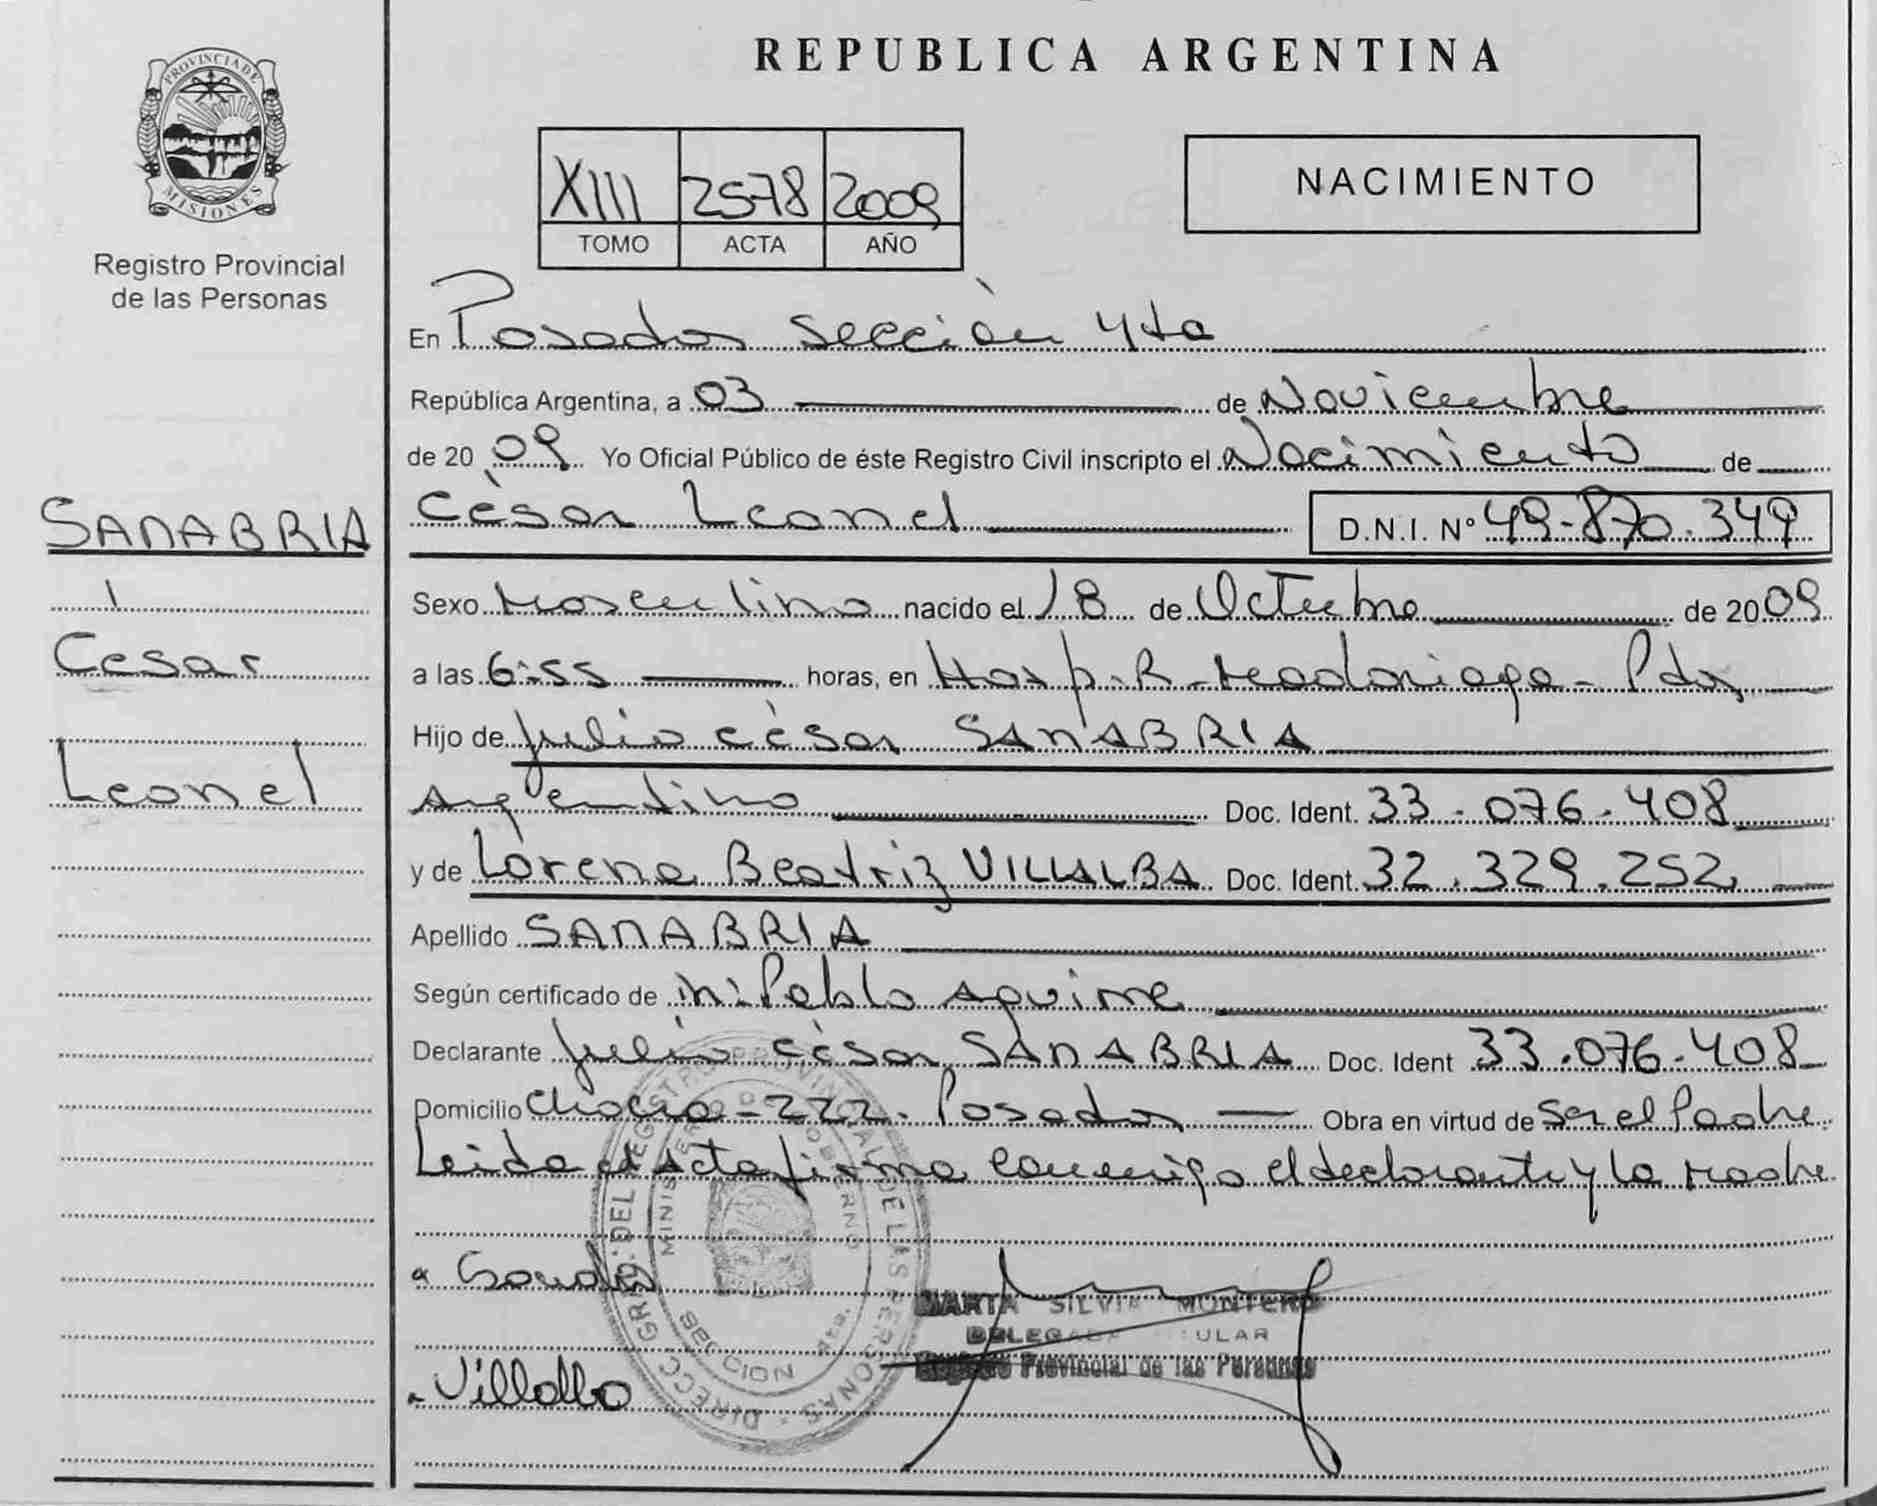 REPUBLICA ARGENTINA
PROVINCIA DE
MISIONES
Registro Provincial
de las Personas
XIII 2578 2009
TOMO ACTA AÑO
NACIMIENTO
En Posadas sección 4ta
República Argentina, a 03 de Noviembre
de 20 09 Yo Oficial Público de éste Registro Civil inscripto el Nacimiento de
César Leonel D.N.I. Nº 49-870.349
SANABRIA
Cesar
Leonel
Sexo Masculino nacido el 18 de Octubre de 20 09
a las 6:55 horas, en Hosp. R. Madariaga - Pdas
Hijo de Julio césar SANABRIA
Argentino Doc. Ident. 33.076.408
y de Lorena Beatriz VILLALBA Doc. Ident. 32.329.252
Apellido SANABRIA
Según certificado de Pablo Aguirre
Declarante Julio césar SANABRIA Doc. Ident 33.076.408
Domicilio 222. Posadas Obra en virtud de Ser el Padre
Leída el Acta firma conmigo el declarante y la Madre
DIRECC. GRAL. DEL REGISTRO PROVINCIAL DE LAS PERSONAS
MINISTERIO DE GOBIERNO
SECCION 4ta.
MARTA SILVIA MONTERO
DELEGADA TITULAR
Registro Provincial de las Personas
Villalba